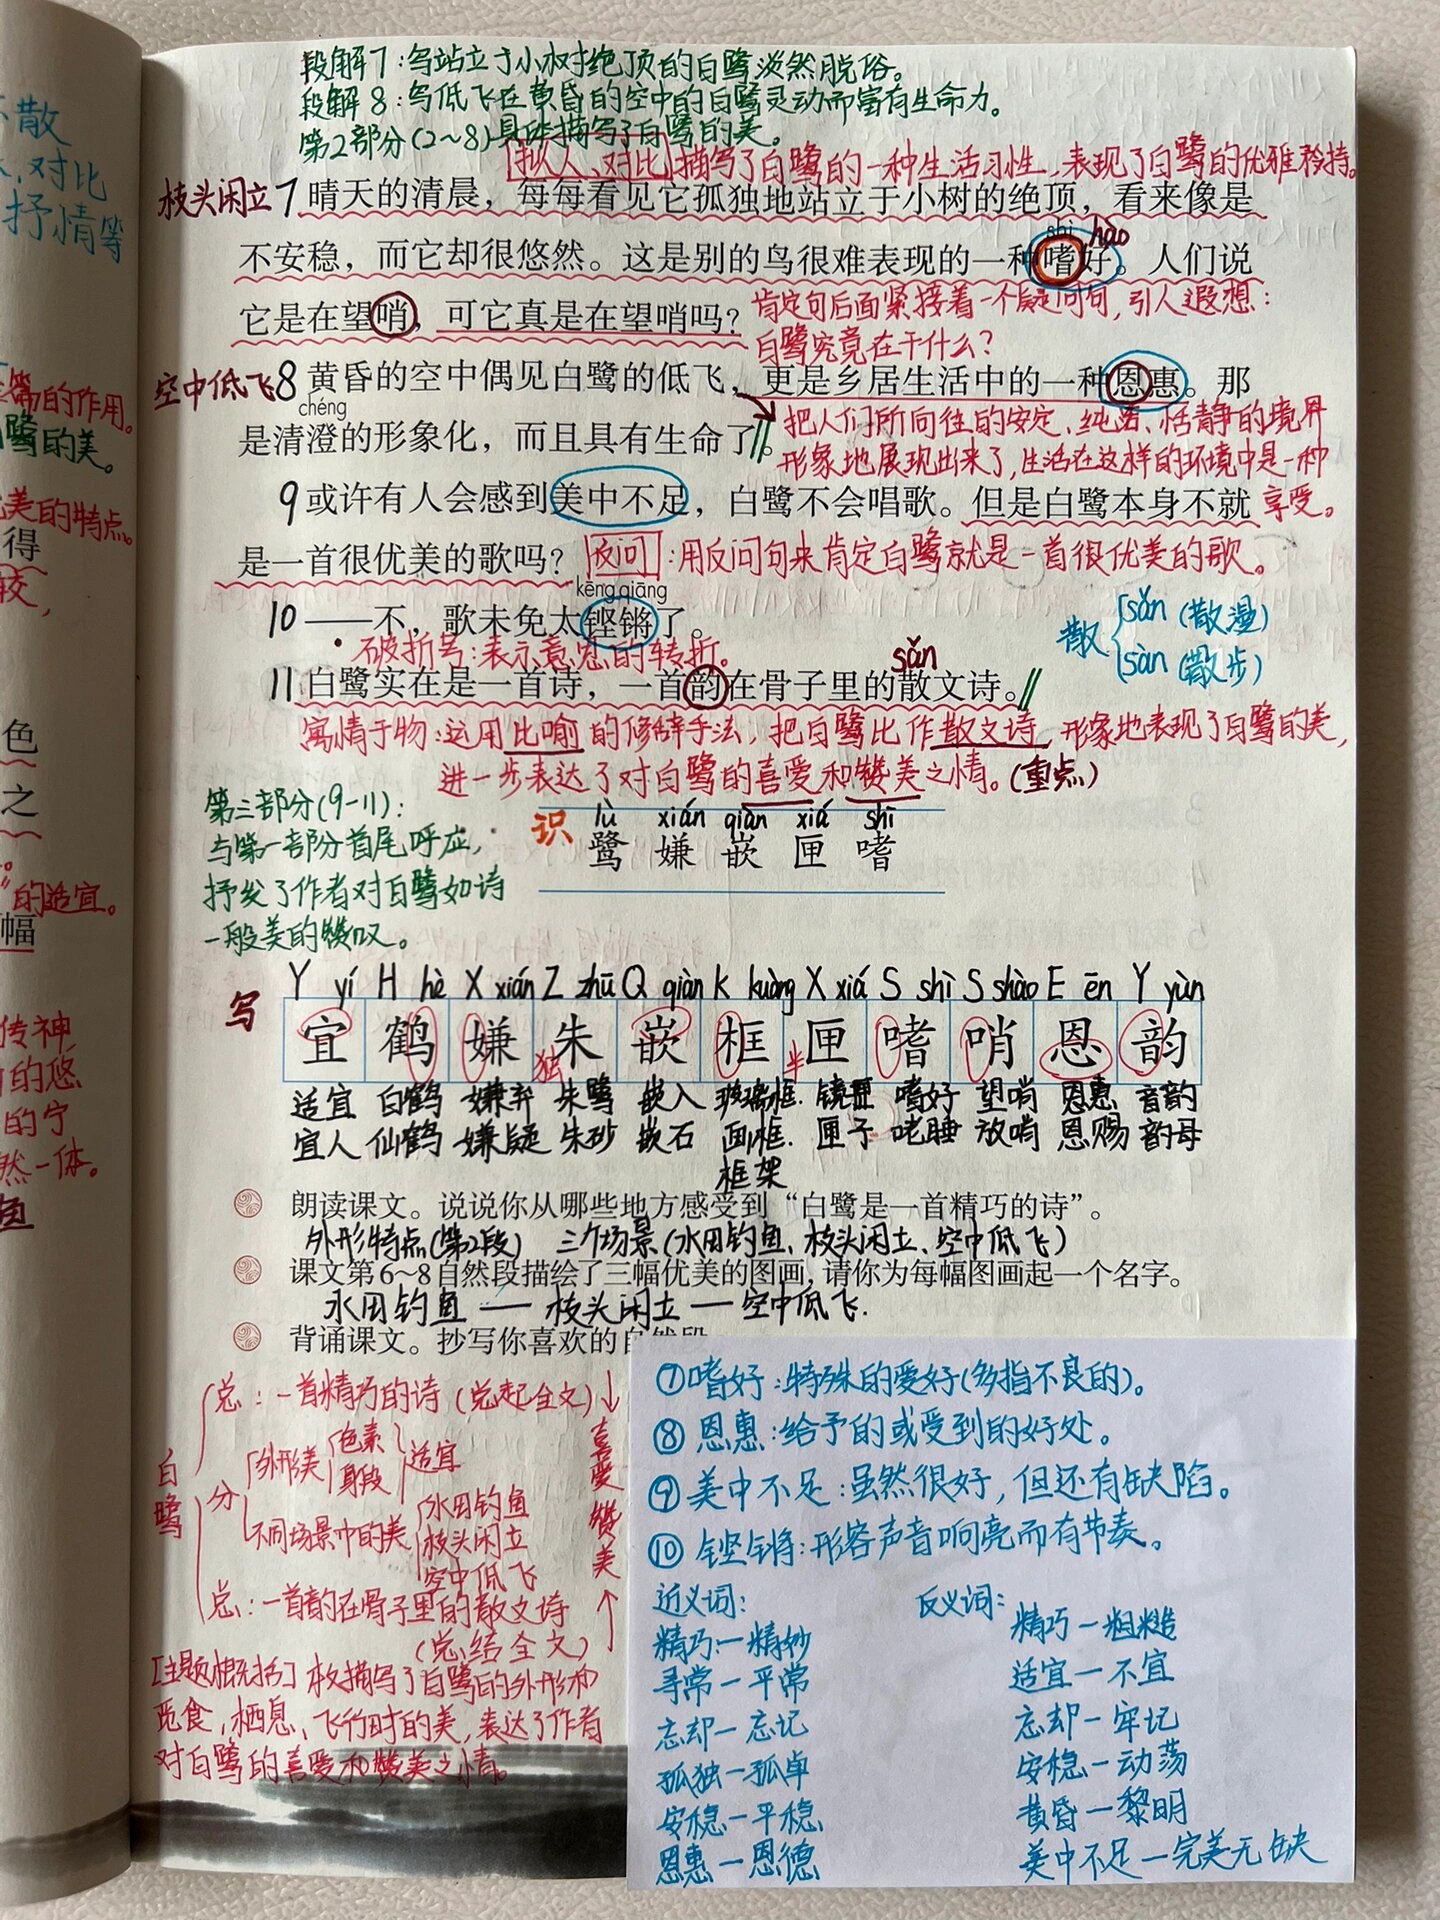 不散
对比
抒情等
篇的作用。
鹭的美。
优美的特点。
得
较，
色
之
"的适宜。
幅
传神
的悠
的宁
然一体。
段解7：写站立于小树绝顶的白鹭淡然脱俗。
段解8：写低飞在黄昏的空中的白鹭灵动而富有生命力。
第2部分(2~8)具体描写了白鹭的美。
拟人、对比 描写了白鹭的一种生活习性，表现了白鹭的优雅矜持。
枝头闲立 7 晴天的清晨，每每看见它孤独地站立于小树的绝顶，看来像是
shì hào
不安稳，而它却很悠然。这是别的鸟很难表现的一种嗜好。人们说
它是在望哨，可它真是在望哨吗？ 肯定句后面紧接着一个疑问句，引人遐想：
白鹭究竟在干什么？
空中低飞 8 黄昏的空中偶见白鹭的低飞，更是乡居生活中的一种恩惠。那
chéng
是清澄的形象化，而且具有生命了。 把人们所向往的安定、纯洁、恬静的境界
形象地展现出来了，生活在这样的环境中是一种
享受。
9 或许有人会感到美中不足，白鹭不会唱歌。但是白鹭本身不就
是一首很优美的歌吗？ 反问：用反问句来肯定白鹭就是一首很优美的歌。
kēng qiāng
10 ——不，歌未免太铿锵了。
• 破折号：表示意思的转折。
散 sǎn (散漫)
sàn (散步)
sǎn
11 白鹭实在是一首诗，一首韵在骨子里的散文诗。
寓情于物：运用比喻的修辞手法，把白鹭比作散文诗，形象地表现了白鹭的美，
进一步表达了对白鹭的喜爱和赞美之情。(重点)
第三部分(9-11)：
与第一部分首尾呼应，
抒发了作者对白鹭如诗
一般美的赞叹。
lù xián qiàn xiá shì
识 鹭 嫌 嵌 匣 嗜
Y yí H hè X xián Z zhū Q qiàn K kuàng X xiá S shì S shào E ēn Y yùn
写 宜 鹤 嫌 独 朱 嵌 框 半 匣 嗜 哨 恩 韵
适宜 白鹤 嫌弃 朱鹭 嵌入 玻璃框 镜匣 嗜好 望哨 恩惠 音韵
宜人 仙鹤 嫌疑 朱砂 嵌石 画框 匣子 嗜睡 放哨 恩赐 韵母
框架
朗读课文。说说你从哪些地方感受到“白鹭是一首精巧的诗”。
外形特点(第2段) 三个场景(水田钓鱼、枝头闲立、空中低飞)
课文第6～8自然段描绘了三幅优美的图画，请你为每幅图画起一个名字。
水田钓鱼 —— 枝头闲立 — 空中低飞.
背诵课文。抄写你喜欢的自然段
白鹭
总：一首精巧的诗(总起全文)
分
外形美 色素 身段 适宜
不同场景中的美 水田钓鱼
枝头闲立
空中低飞
总：一首韵在骨子里的散文诗
(总结全文)
喜爱赞美
[主题概括] 本文描写了白鹭的外形和
觅食，栖息、飞行时的美，表达了作者
对白鹭的喜爱和赞美之情。
⑦嗜好：特殊的爱好(多指不良的)。
⑧恩惠：给予的或受到的好处。
⑨美中不足：虽然很好，但还有缺陷。
⑩铿锵：形容声音响亮而有节奏。
近义词：
精巧—精妙
寻常—平常
忘却—忘记
孤独—孤单
安稳—平稳
恩惠—恩德
反义词：
精巧—粗糙
适宜—不宜
忘却—牢记
安稳—动荡
黄昏—黎明
美中不足—完美无缺